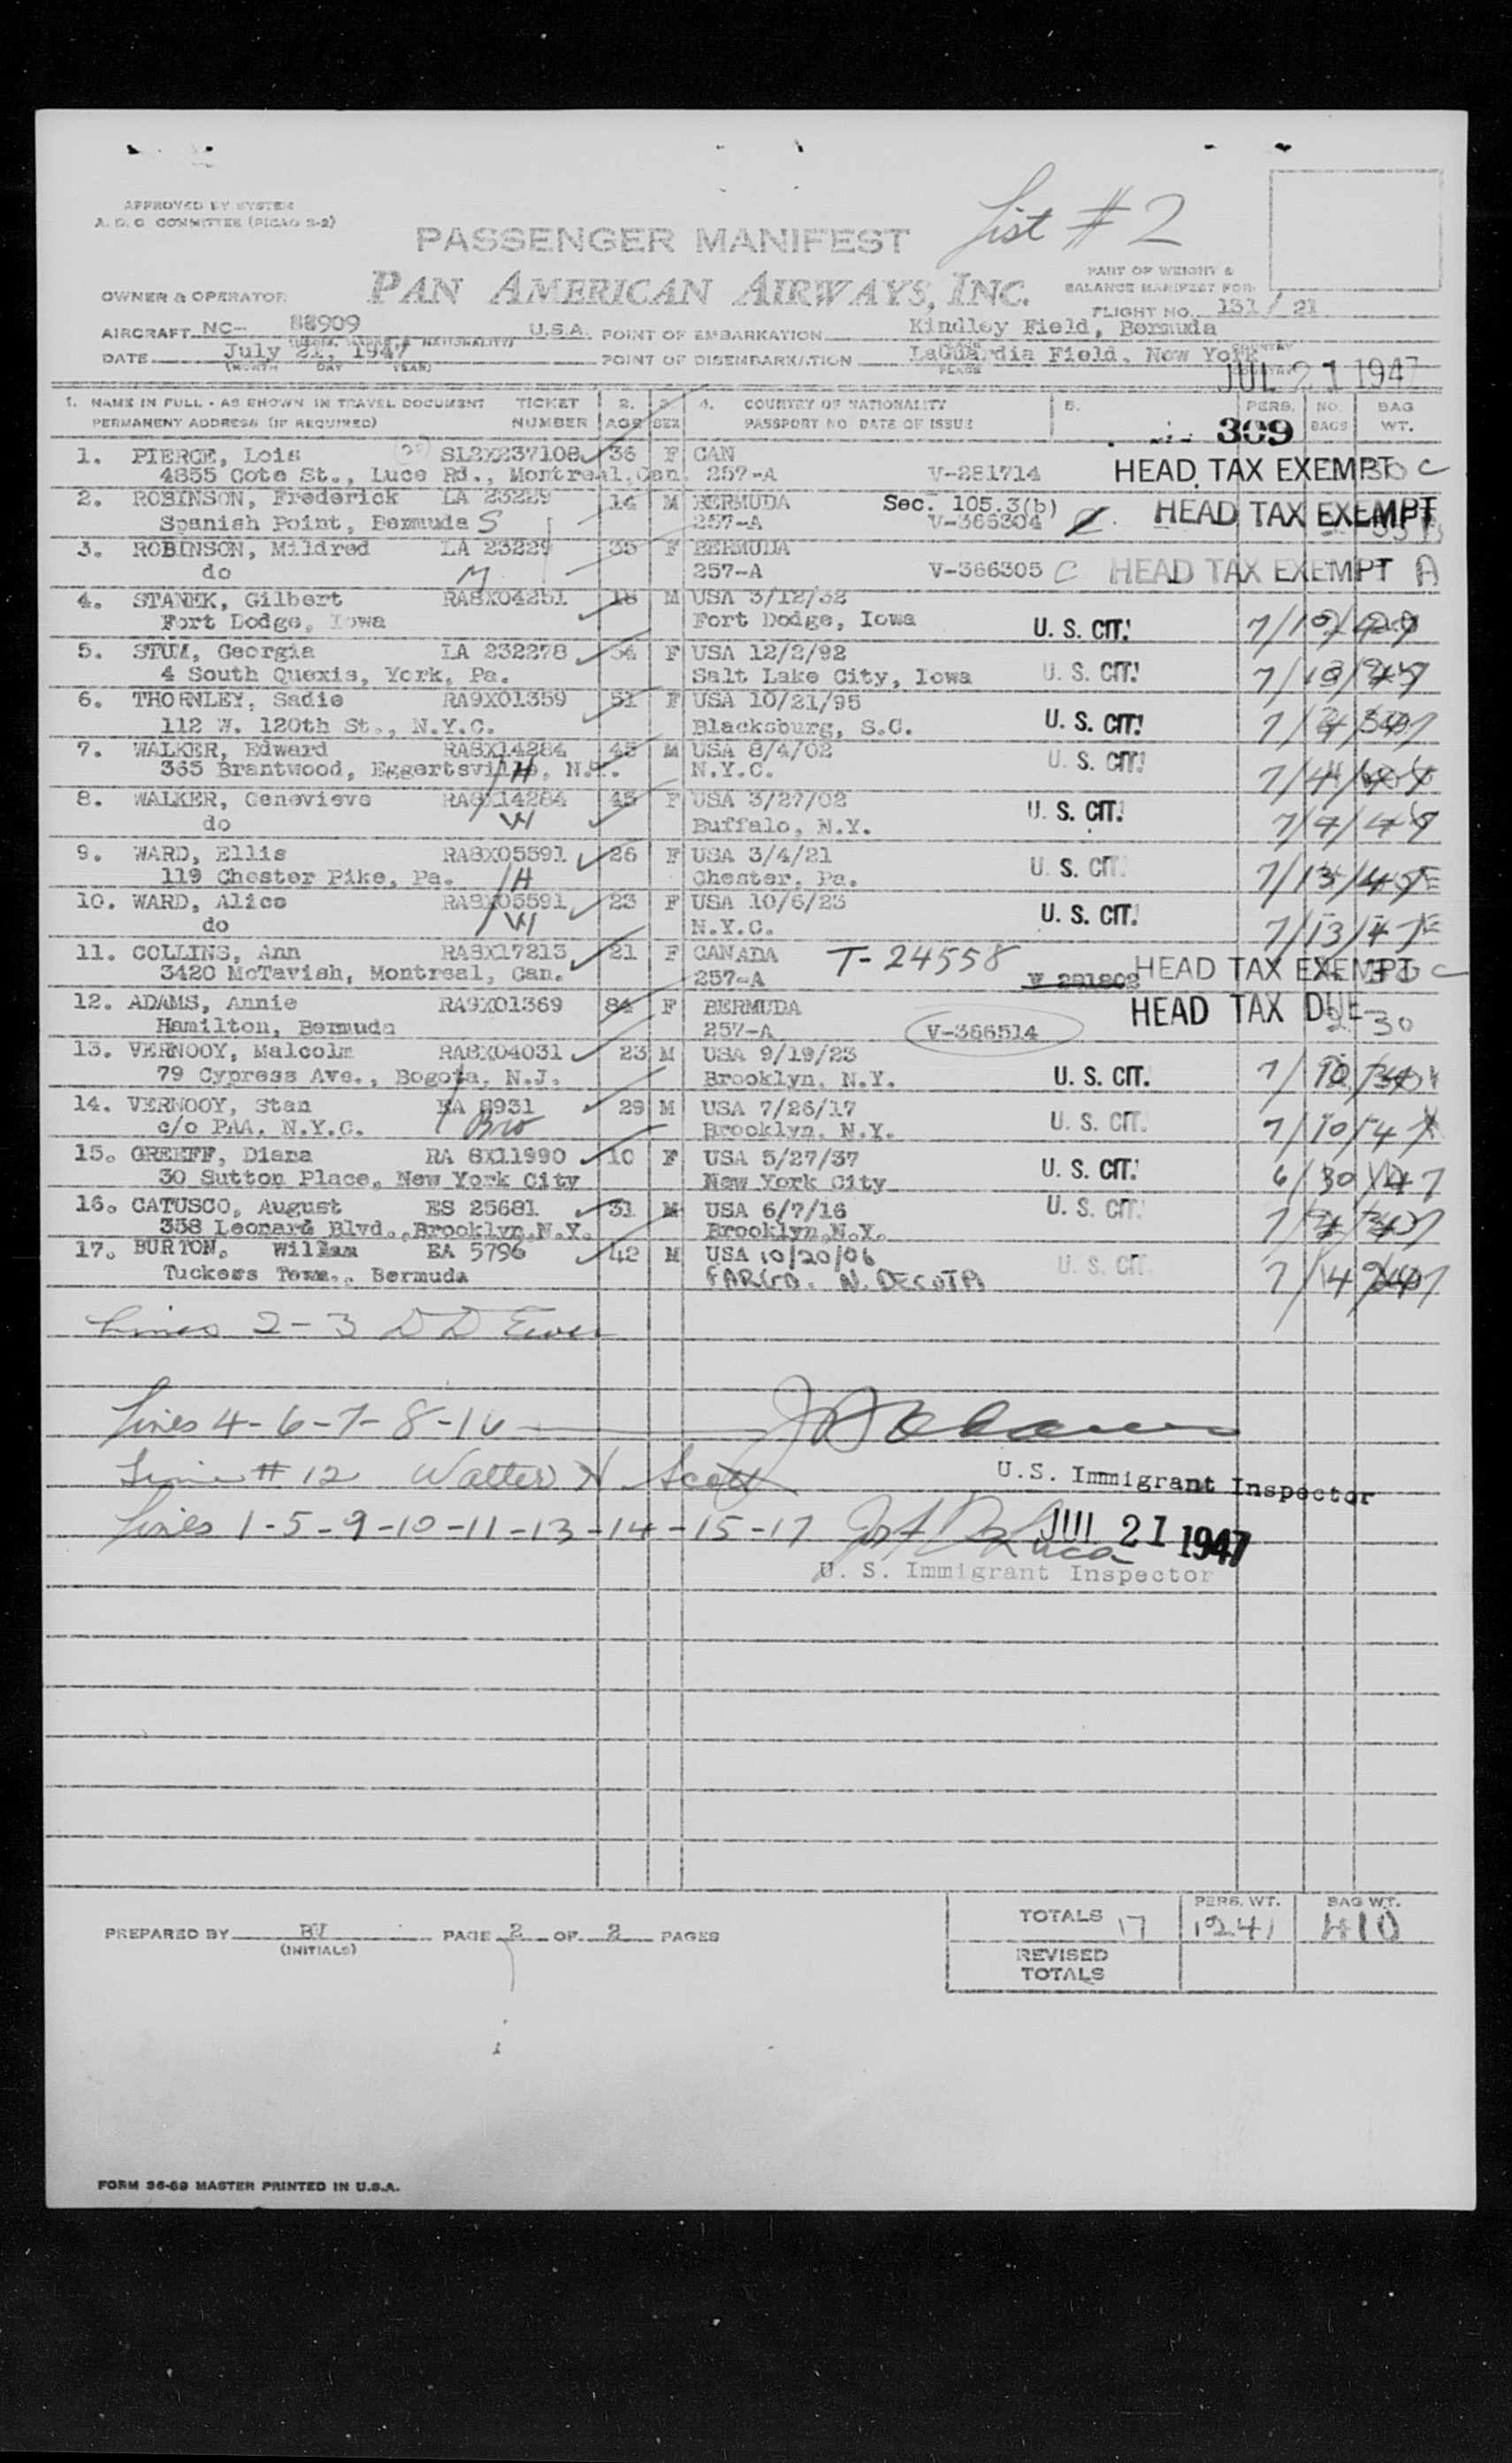 List # 2
APPROVED BY SYSTEM
A. D. C COMMITTEE (PICAO 2-2)
PASSENGER MANIFEST
PAN AMERICAN AIRWAYS, INC.
PART OF WEIGHT &
BALANCE MANIFEST FOR:
OWNER & OPERATOR
FLIGHT NO. 131 / 21
AIRCRAFT NC- 88909 U.S.A. POINT OF EMBARKATION Kindley Field, Bermuda
DATE July 21, 1947 POINT OF DISEMBARKATION LaGuardia Field, New York
(MONTH DAY YEAR) PLACE
JUL 21 1947
1. NAME IN FULL - AS SHOWN IN TRAVEL DOCUMENT TICKET 2. 3. 4. COUNTRY OF NATIONALITY 5. PERS. NO. BAG
PERMANENT ADDRESS (IF REQUIRED) NUMBER AGE SEX PASSPORT NO DATE OF ISSUE 309 BAGS WT.
1. PIERCE, Lois SL2X237108 36 F CAN
4855 Cote St., Luce Rd., Montreal, Can. 257-A V-281714 HEAD TAX EXEMPT C
2. ROBINSON, Frederick LA 23229 14 M BERMUDA Sec. 105.3(b)
Spanish Point, Bermuda S 257-A V-366304 HEAD TAX EXEMPT
3. ROBINSON, Mildred LA 23229 35 F BERMUDA
do M 257-A V-366305 C HEAD TAX EXEMPT A
4. STANEK, Gilbert RA8X04251 18 M USA 3/12/32
Fort Dodge, Iowa Fort Dodge, Iowa U. S. CIT.
5. STUM, Georgia LA 232278 54 F USA 12/2/92
4 South Quexis, York, Pa. Salt Lake City, Iowa U. S. CIT.
6. THORNLEY, Sadie RA9X01359 51 F USA 10/21/95
112 W. 120th St., N.Y.C. Blacksburg, S.C. U. S. CIT.
7. WALKER, Edward RA8X14284 45 M USA 8/4/02
365 Brantwood, Eggertsville, N.Y. H N.Y.C. U. S. CIT.
8. WALKER, Genevieve RA8X14284 45 F USA 3/27/02
do W Buffalo, N.Y. U. S. CIT. 7/4/47
9. WARD, Ellis RA8X05591 26 F USA 3/4/21
119 Chester Pike, Pa. H Chester, Pa. U. S. CIT. 7/13/47
10. WARD, Alice RA8X05591 23 F USA 10/6/23
do W N.Y.C. U. S. CIT. 7/13/47
11. COLLINS, Ann RA8X17213 21 F CANADA T-24558
3420 McTavish, Montreal, Can. 257-A HEAD TAX EXEMPT C
12. ADAMS, Annie RA9X01369 84 F BERMUDA HEAD TAX DUE
Hamilton, Bermuda 257-A V-366514 30
13. VERNOOY, Malcolm RA8X04031 23 M USA 9/19/23
79 Cypress Ave., Bogota, N.J. Brooklyn, N.Y. U. S. CIT.
14. VERNOOY, Stan EA 8931 29 M USA 7/26/17
c/o PAA, N.Y.C. Bro Brooklyn, N.Y. U. S. CIT. 7/10/47
15. GREEFF, Diana RA 8X11990 10 F USA 5/27/37
30 Sutton Place, New York City New York City U. S. CIT. 6/30/47
16. CATUSCO, August ES 25681 31 M USA 6/7/16
358 Leonard Blvd., Brooklyn, N.Y. Brooklyn, N.Y. U. S. CIT.
17. BURTON, William EA 5796 42 M USA 10/20/06
Tuckers Town., Bermuda FARGO. N. DECOTA U. S. CIT.
Lines 2-3 D D
Lines 4-6-7-8-16
Line # 12 Walter N Scott
U.S. Immigrant Inspector
Lines 1-5-9-10-11-13-14-15-17 Jos A DeLuca
JUL 21 1947
U. S. Immigrant Inspector
TOTALS 17 PERS. WT. 1241 BAG WT. 410
PREPARED BY BV PAGE 2 OF 2 PAGES
(INITIALS)
REVISED
TOTALS
FORM 36-69 MASTER PRINTED IN U.S.A.